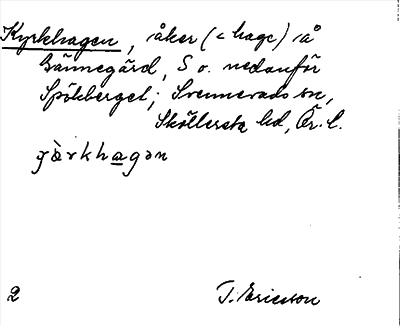 Kyrkhagen, åker (< hage) i å
Gännegård, S o. nedanför
Spökberget; Svennevads sn,
Sköllersta hd, Ör. l.
2 T. Ericsson